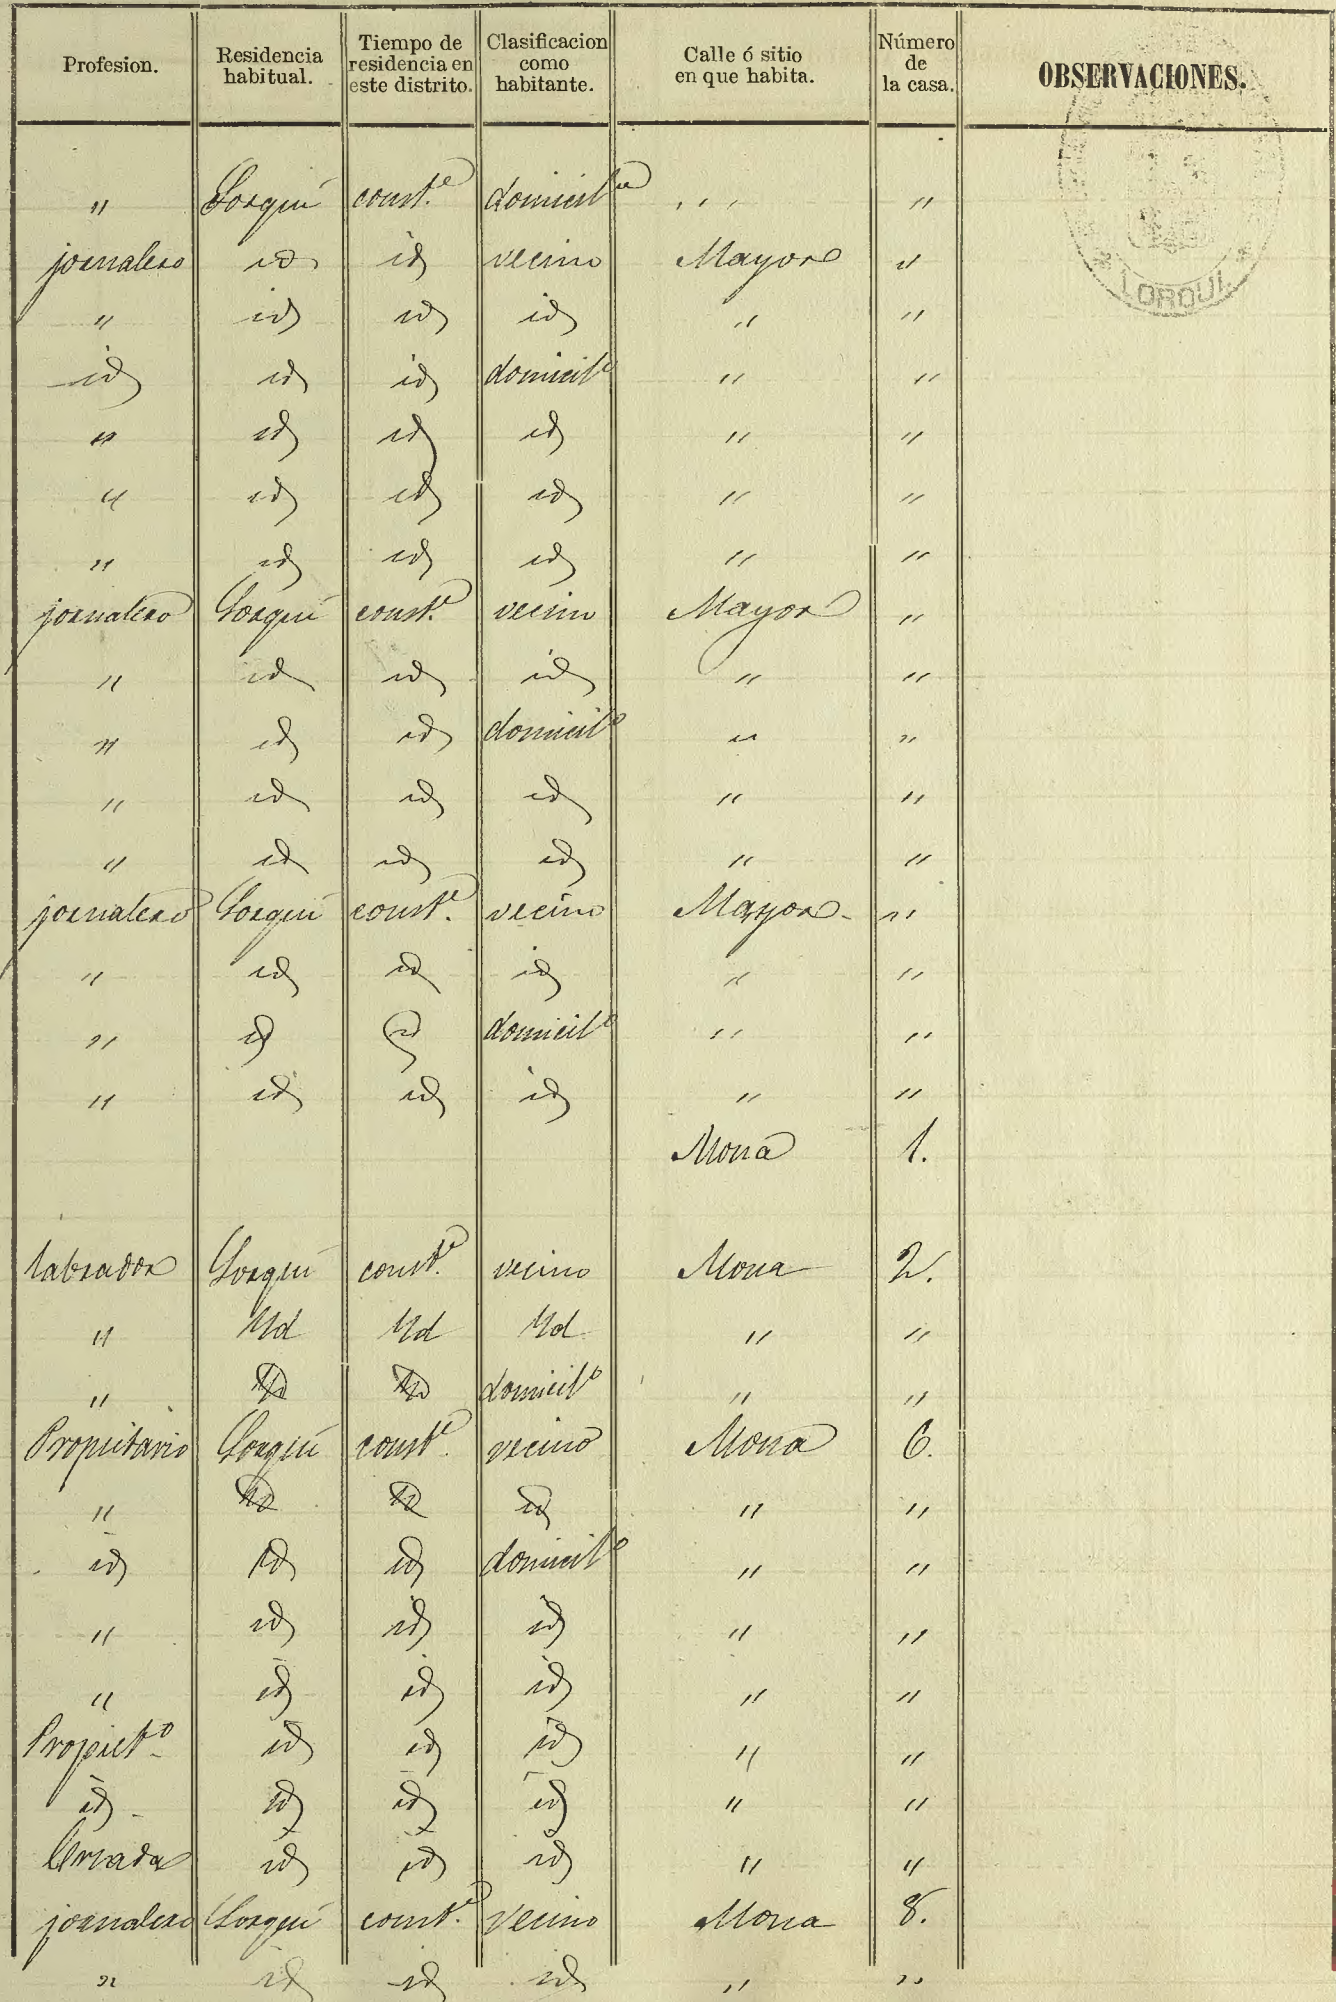 Profesion. Residencia habitual. Tiempo de residencia en este distrito. Clasificacion como habitante. Calle ó sitio en que habita. Número de la casa. OBSERVACIONES.
" Lorquí const.e domicil " "
jornalero id id vecino Mayor "
" id id id " "
id id id domicil.o " "
" id id id " "
" id id id " "
" id id id " "
jornalero Lorquí const.e vecino Mayor "
" id id id " "
" id id domicil.o " "
" id id id " "
" id id id " "
jornalero Lorquí const.e vecino Mayor "
" id id id " "
" id id domicil.o " "
" id id id " "
Mona 1.
labrador Lorquí const.e vecino Mona 2.
" Yd Yd Yd " "
" Yd Yd domicil.o " "
Propietario Lorquí const.e vecino Mona 6.
" Yd id id " "
id id id domicil.o " "
" id id id " "
" id id id " "
Propiet.o id id id " "
id id id id " "
Criada id id id " "
jornalero Lorquí const.e vecino Mona 8.
" id id id " "
LORQUI